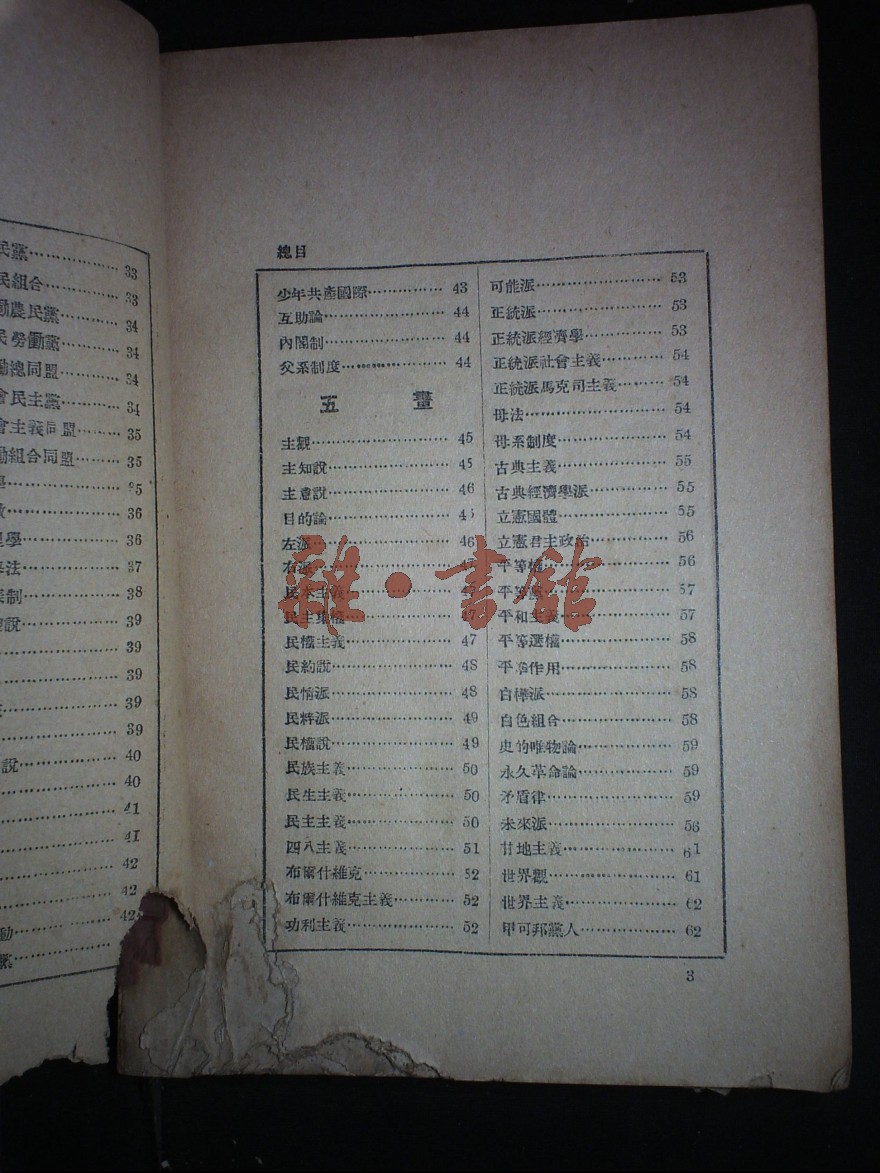 民黨 33
民組合 33
農民黨 34
勞働黨 34
總同盟 34
民主黨 34
會主義同盟 35
組合同盟 35
35
36
學 36
法 37
制 38
說 39
39
39
39
說 40
40
41
41
42
42
42
總目
少年共產國際 43
互助論 44
內閣制 44
父系制度 44
五畫
主觀 45
主知說 45
主意說 46
目的論 46
左派 46
右派
民本主義
民主集權 47
民權主義 47
民約說 48
民情派 48
民粹派 49
民權說 49
民族主義 50
民生主義 50
民主主義 50
四八主義 51
布爾什維克 52
布爾什維克主義 52
功利主義 52
可能派 53
正統派 53
正統派經濟學 53
正統派社會主義 54
正統派馬克司主義 54
母法 54
母系制度 54
古典主義 55
古典經濟學派 55
立憲國體 55
立憲君主政治 56
平等權 56
平等黨 57
平和主義 57
平等選權 58
平準作用 58
白樺派 58
白色組合 58
史的唯物論 59
永久革命論 59
矛盾律 59
未來派 56
甘地主義 61
世界觀 61
世界主義 62
甲可邦黨人 62
3
雜·書館